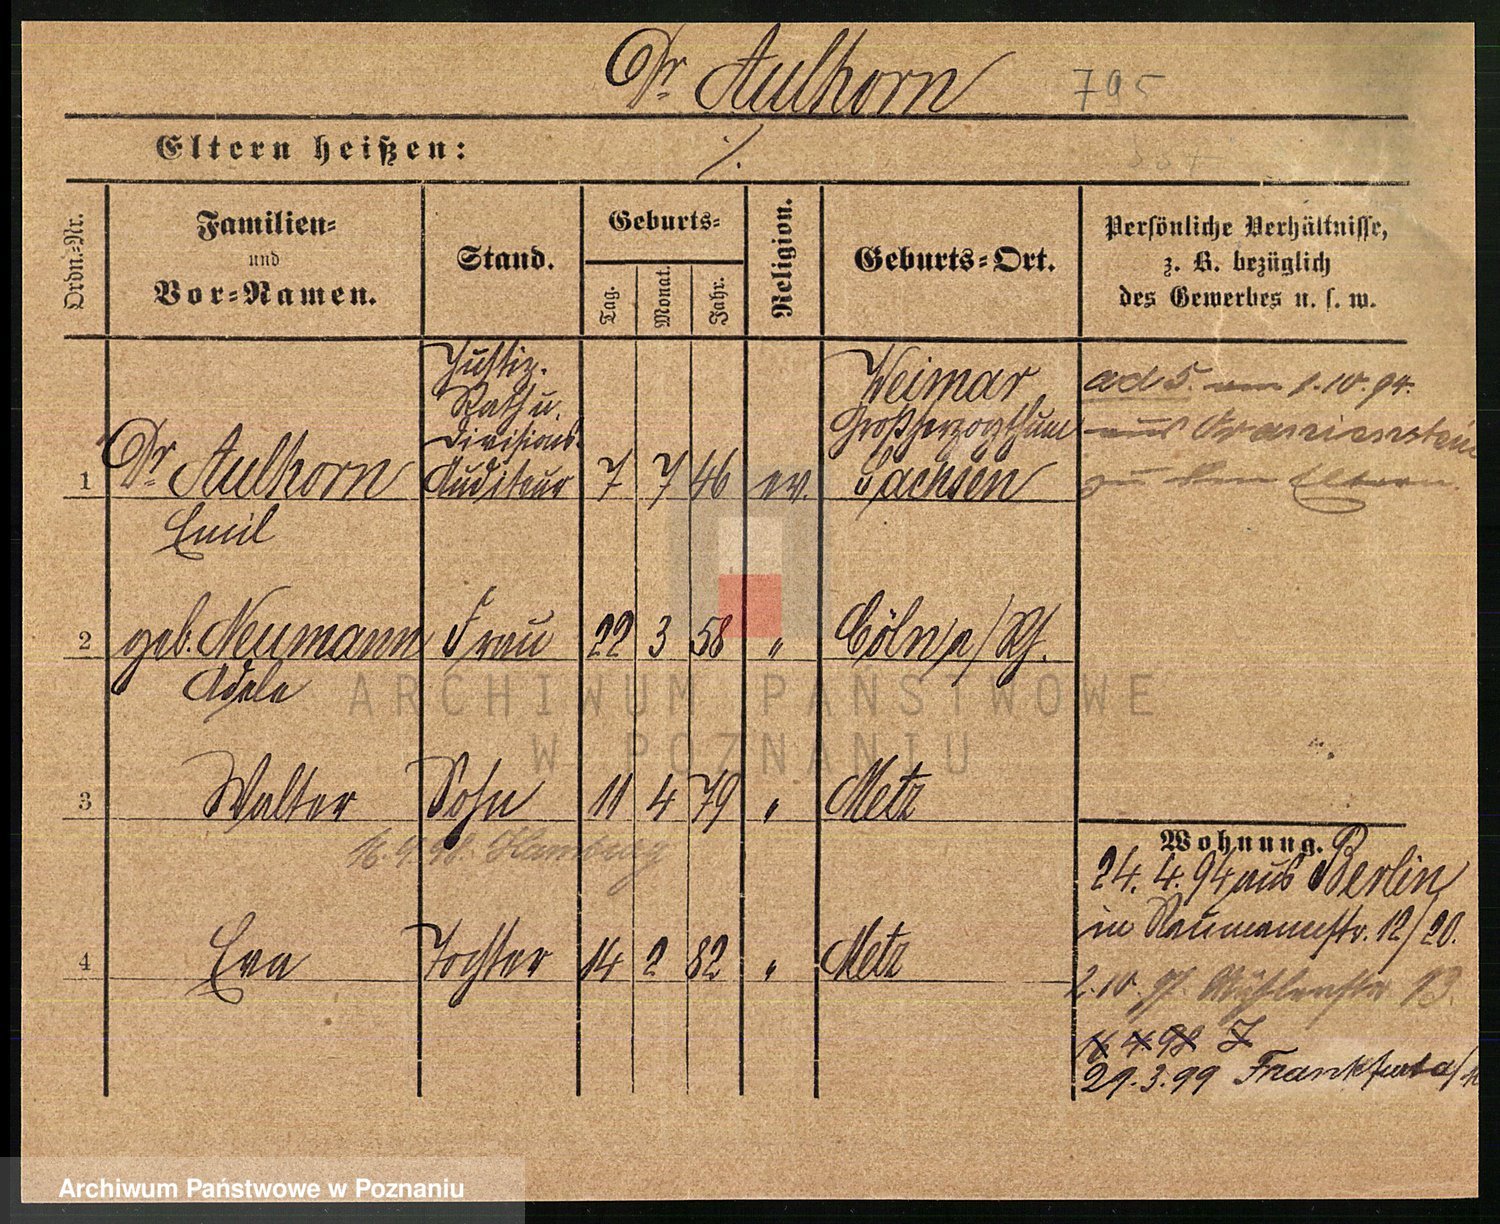 Dr. Aulhorn 795
Eltern heißen: ./.
Ordn.=Nr.
Familien=
und
Vor=Namen.
Stand.
Geburts=
Tag.
Monat.
Jahr.
Religion.
Geburts=Ort.
Persönliche Verhältnisse,
z. B. bezüglich
des Gewerbes u. s. w.
Justiz-
Rath u.
Divisions-
Auditeur
Weimar
Großherzogthum
Sachsen
1 Dr. Aulhorn 7 7 46 ev.
Emil
ad 5. am 1.10.94.
aus
zu den Eltern.
2 geb. Neumann Frau 22 3 58 " Cöln a/Rh.
Adele
3 Walter Sohn 11 4 79 " Metz
16.4.98. Hamburg
4 Eva Tochter 14 2 82 " Metz
Wohnung.
24.4.94 aus Berlin
in Naumannstr. 12/20.
2.10.97. Mühlenstr. 13.
16 4 98 J
29.3.99 Frankfurt a/
ARCHIWUM PAŃSTWOWE
W POZNANIU
Archiwum Państwowe w Poznaniu